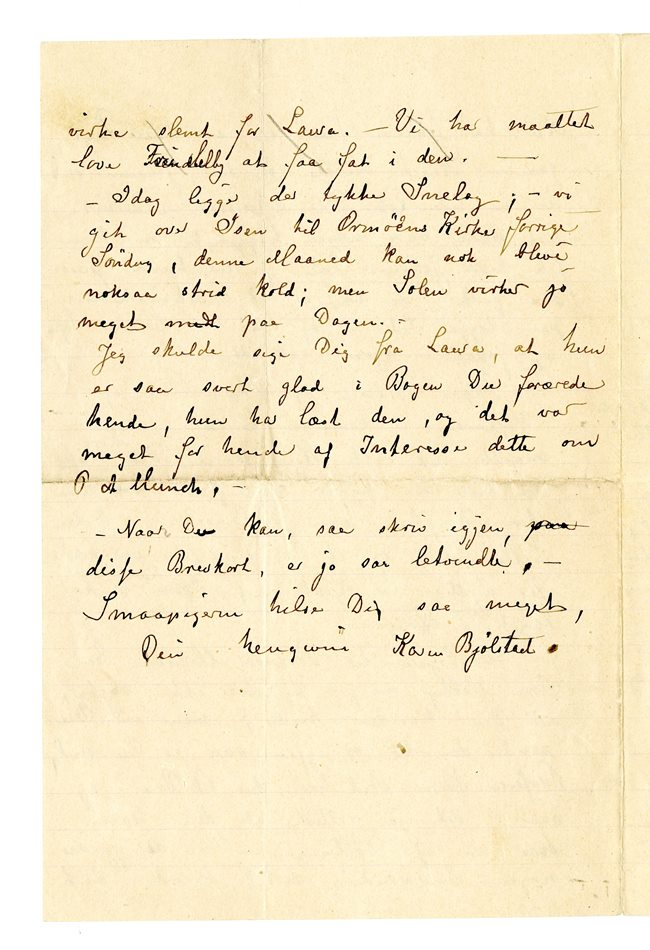 virke slemt for Laura. – Vi har maattet
love at faa fat i den. —
– Idag ligger der tykke Snelag; – vi
gik over Isen til Ormöens Kirke forrige
Söndag, denne Maaned kan nok blive
noksaa strid kold; men Solen virker jo
meget midt paa Dagen. –
Jeg skulde sige Dig fra Laura, at hun
er saa svert glad i Bogen Du forærede
hende, hun har læst den, og det var
meget for hende af Interesse dette om
P A Munch. –
– Naar Du kan, saa skriv igjen, paa
disse Brevkort, er jo saa letvindte. –
Smaapigerne hilse Dig saa meget,
Din hengivne Karen Bjölstad.